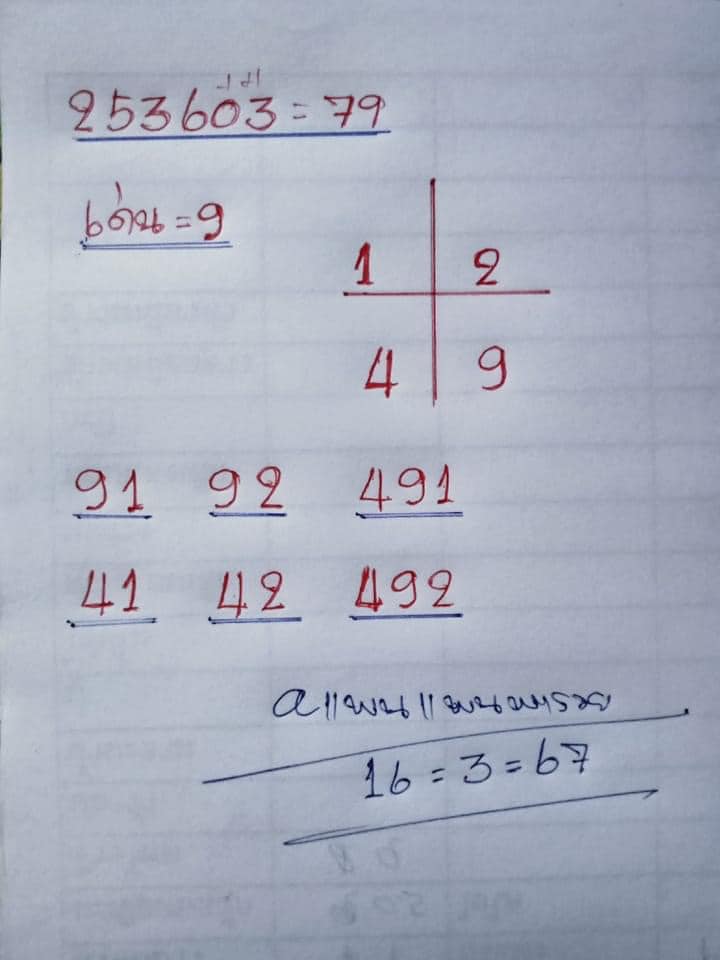 253603 = 79
เด่น = 9
1 2
4 9
91 92 491
41 42 492
16 = 3 = 67